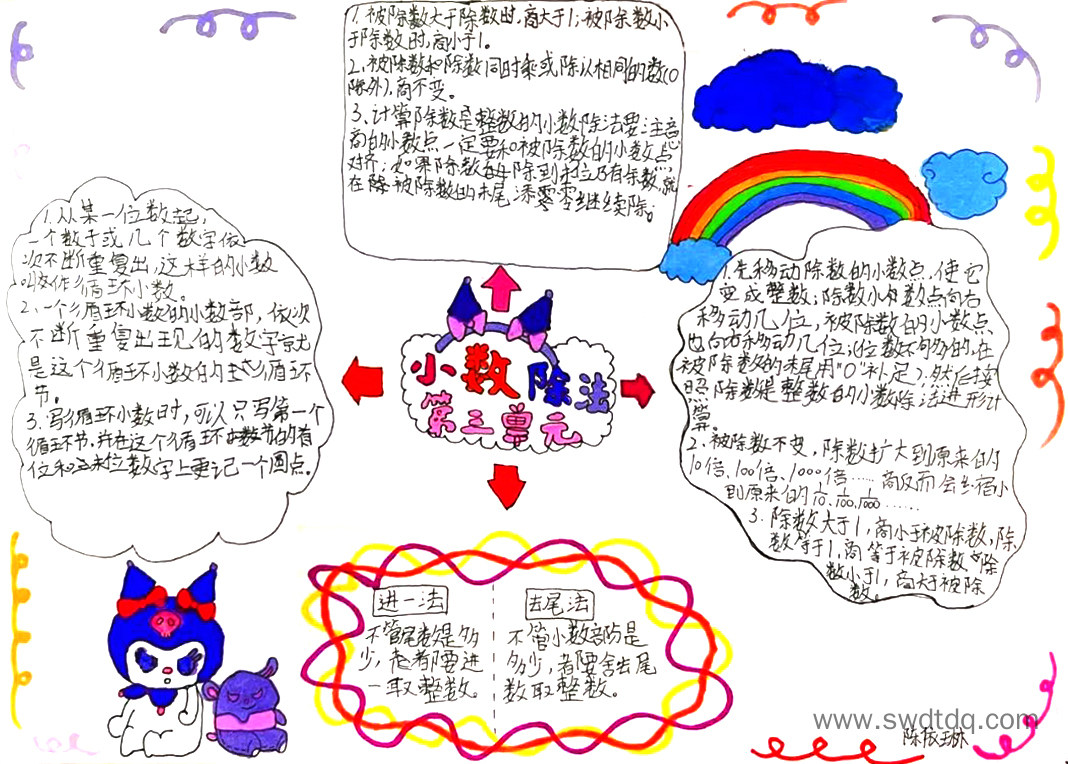 1. 被除数大于除数时,商大于1;被除数小
于除数时,商小于1。
2. 被除数和除数同时乘或除以相同的数(0
除外),商不变。
3、计算除数是整数的小数除法要注意
商的小数点一定要和被除数的小数点
对齐;如果除数每除到末位乃有余数,就
在除被除数的末尾添零零继续除。
1. 从某一位数起,
一个数字或几个数字依
次不断重复出,这样的小数
叫做作循环小数。
2. 一个循环小数的小数部,依次
不断重复出现的数字就
是这个循环小数的循环
节。
3. 写循环小数时,可以只写第一个
循环节,并在这个循环节的首
位和末位数字上要记一个圆点。
小数除法
第三单元
1. 先移动除数的小数点,使它
变成整数;除数小数点向右
移动几位,被除数的小数点
也向右移动几位;(位数不够的,在
被除数的末尾用"0"补足);然后按
照除数是整数的小数除法进行计
算。
2. 被除数不变,除数扩大到原来的
10倍、100倍、1000倍……商反而会缩小
到原来的1/10、1/100、1/1000……
3. 除数大于1,商小于被除数,除
数等于1,商等于被除数,除
数小于1,商大于被除
数。
进一法
不管尾数是多
少,都要进
一取整数。
去尾法
不管小数部分是
多少,都要舍去尾
数取整数。
www.swdtdq.com